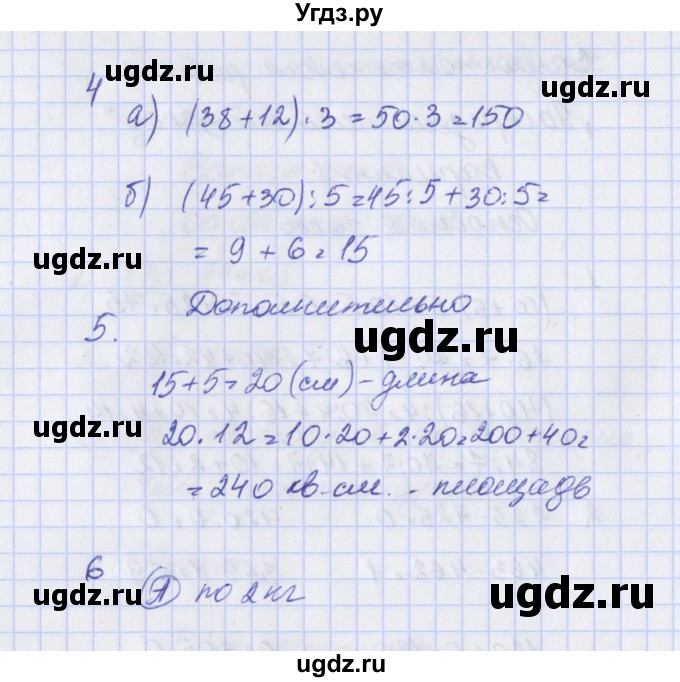 Угдз.ру
ugdz.ru ugdz.ru
4
а) (38+12)·3=50·3=150
б) (45+30):5=45:5+30:5=
ugdz.ru ugdz.ru
= 9 + 6 = 15
Дополнительно
5.
ugdz.ru
15+5=20 (см) - длина
ugdz.ru ugdz.ru
20·12=10·20+2·20=200+40=
= 240 кв.см. - площадь
ugdz.ru
6
ugdz.ru ugdz.ru
А по 2 кг
ugdz.ru